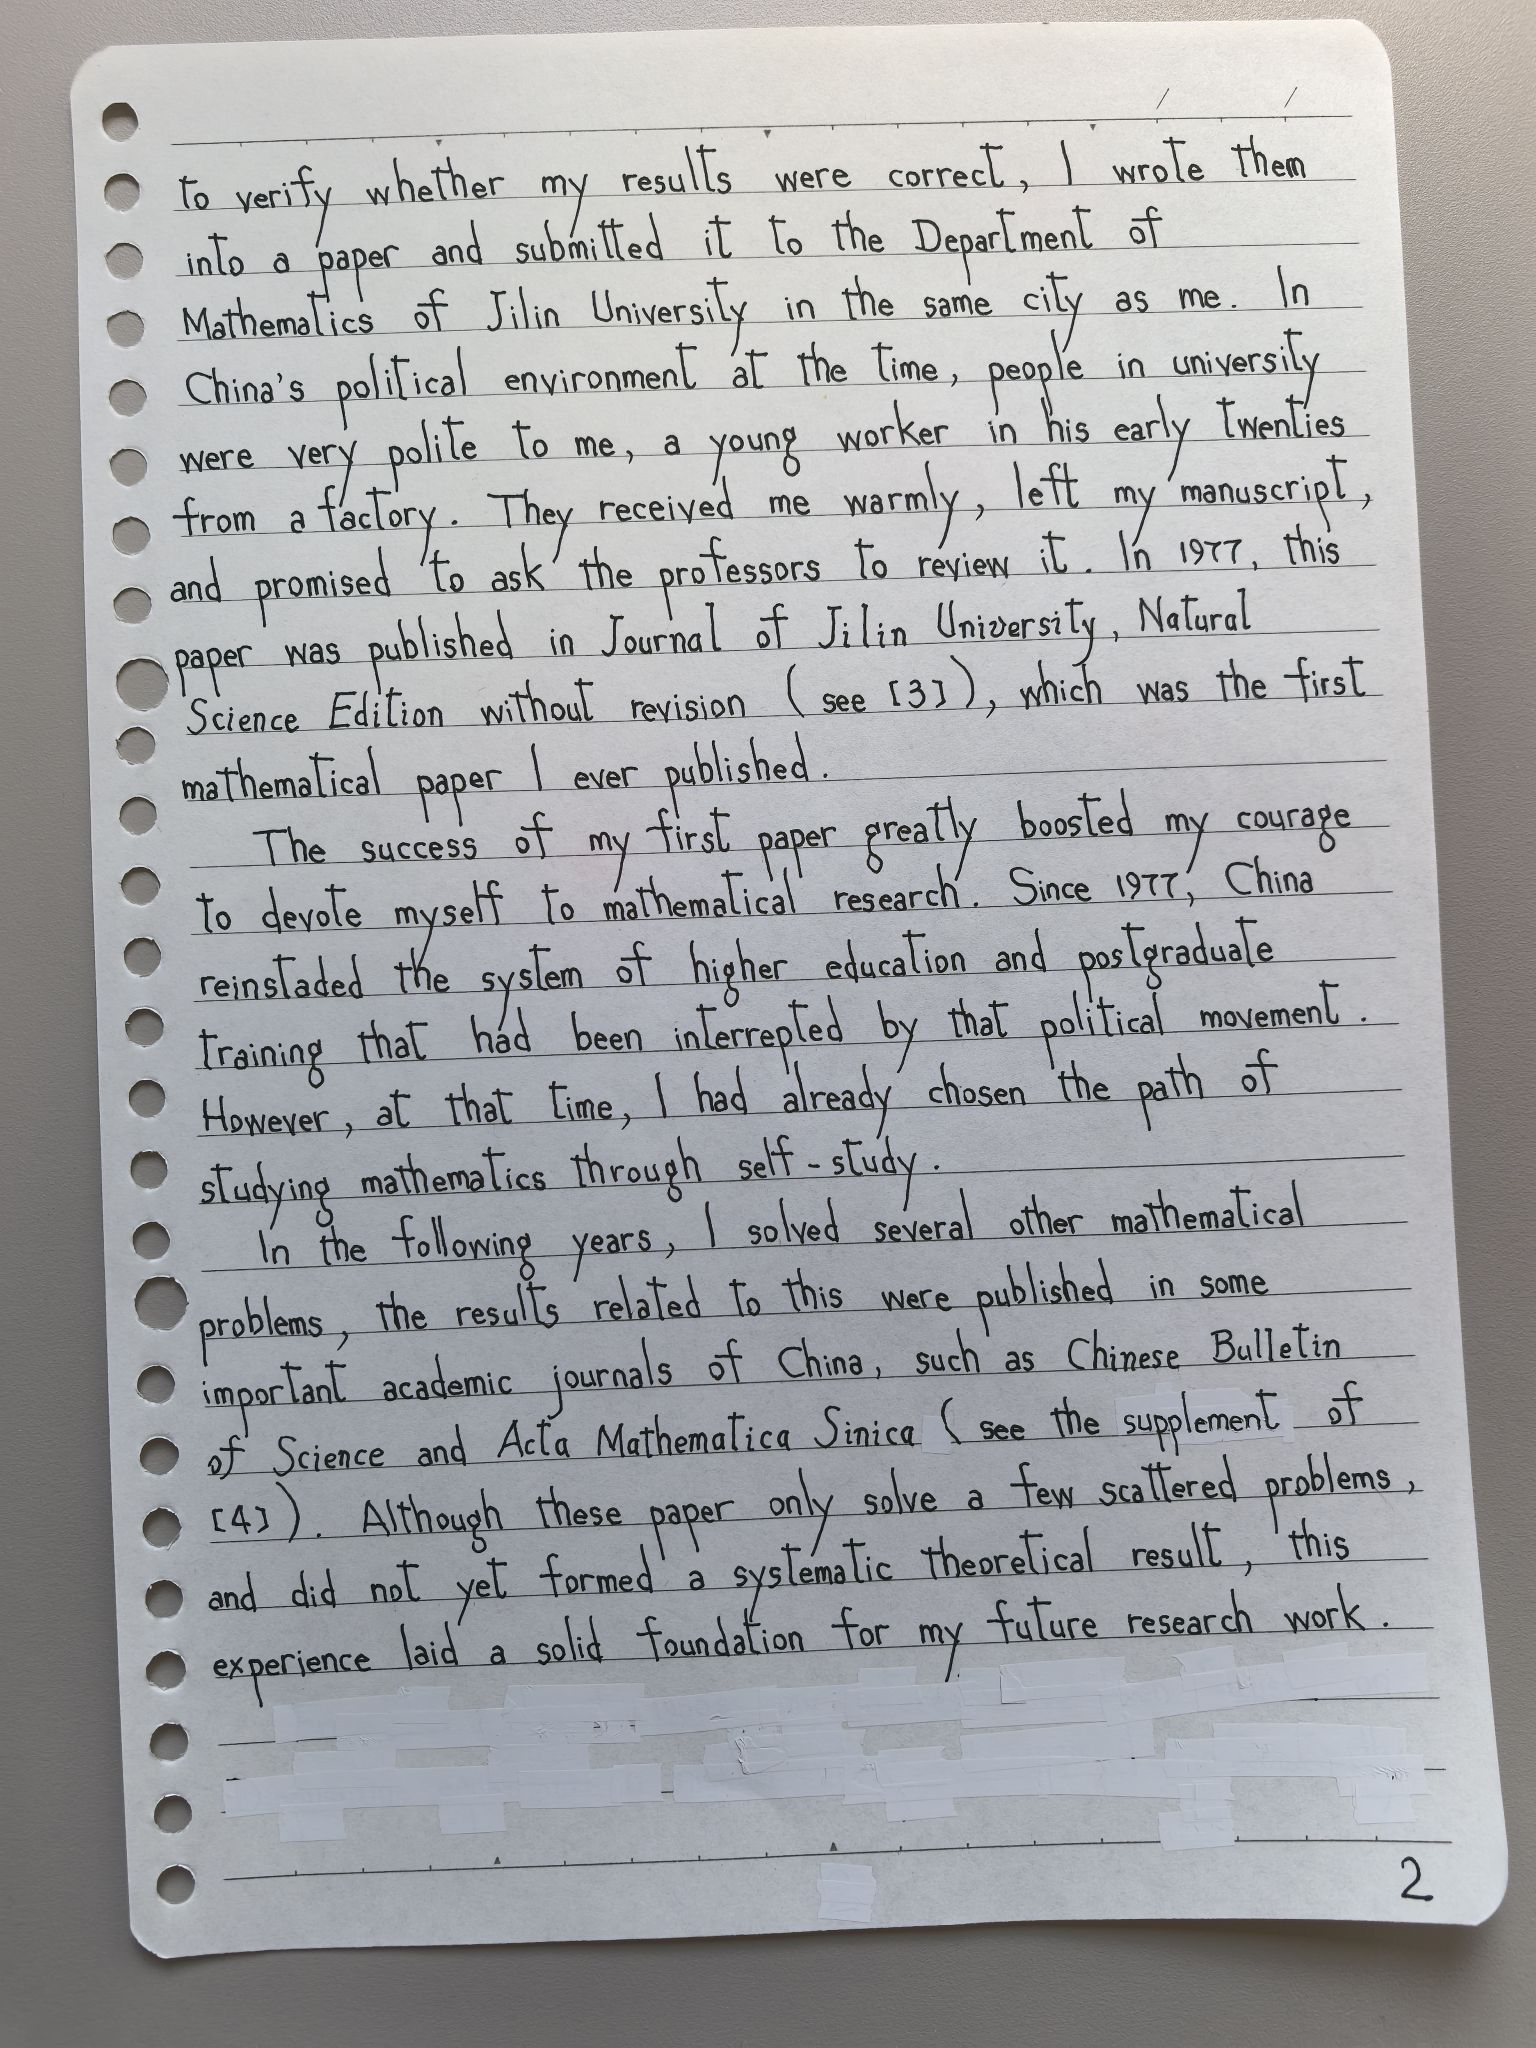 to verify whether my results were correct, I wrote them
into a paper and submitted it to the Department of
Mathematics of Jilin University in the same city as me. In
China's political environment at the time, people in university
were very polite to me, a young worker in his early twenties
from a factory. They received me warmly, left my manuscript,
and promised to ask the professors to review it. In 1977, this
paper was published in Journal of Jilin University, Natural
Science Edition without revision (see [3]), which was the first
mathematical paper I ever published.
The success of my first paper greatly boosted my courage
to devote myself to mathematical research. Since 1977, China
reinstaded the system of higher education and postgraduate
training that had been interrepted by that political movement.
However, at that time, I had already chosen the path of
studying mathematics through self-study.
In the following years, I solved several other mathematical
problems, the results related to this were published in some
important academic journals of China, such as Chinese Bulletin
of Science and Acta Mathematica Sinica (see the supplement of
[4]). Although these paper only solve a few scattered problems,
and did not yet formed a systematic theoretical result, this
experience laid a solid foundation for my future research work.
2